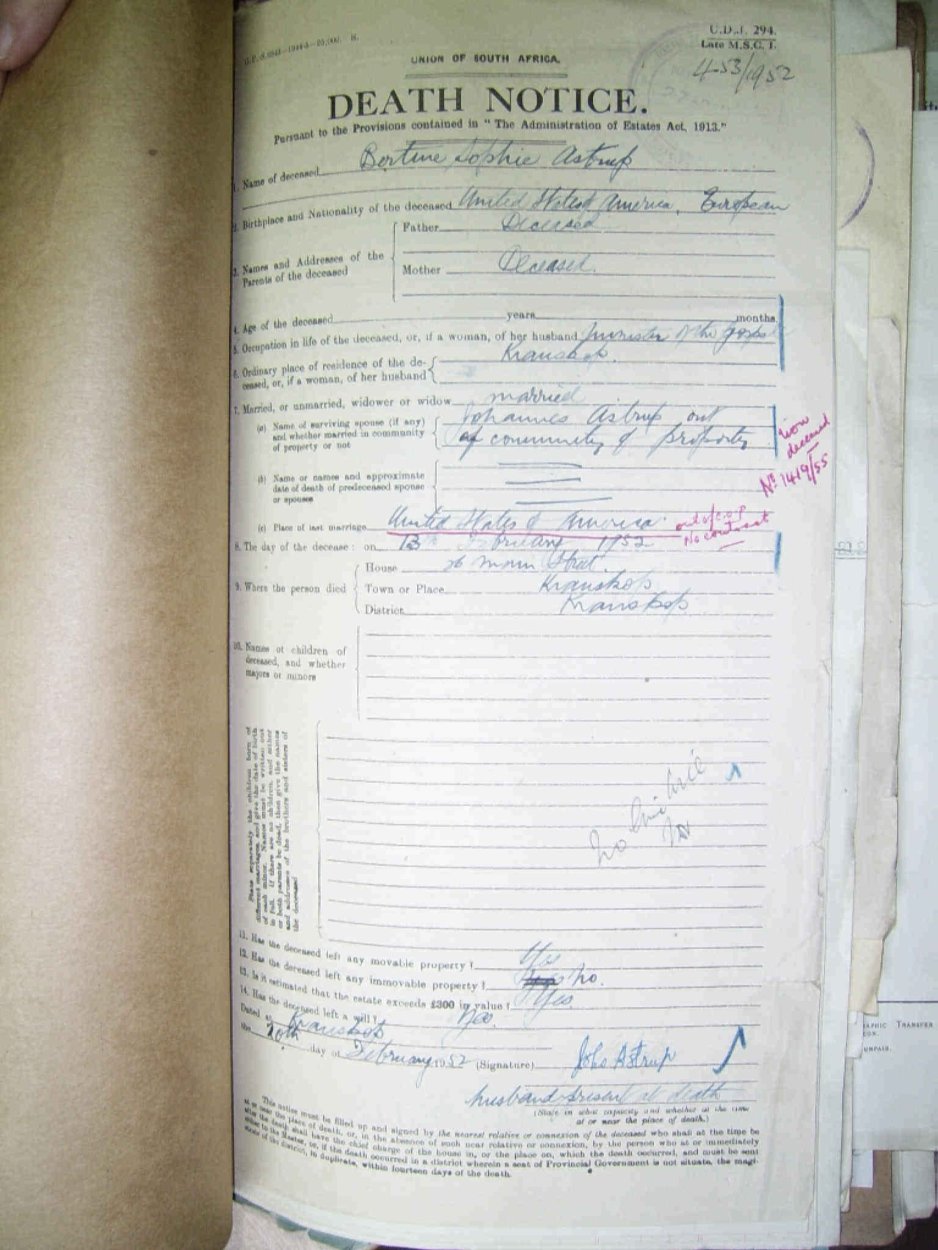 U.D.J. 294.
Late M.S.C. 1.
453/1952
UNION OF SOUTH AFRICA.
DEATH NOTICE.
Pursuant to the Provisions contained in "The Administration of Estates Act, 1913."
1. Name of deceased Bertine Sophie Astrup
2. Birthplace and Nationality of the deceased United States of America, European
3. Names and Addresses of the Parents of the deceased
Father Deceased
Mother Deceased.
4. Age of the deceased years months
5. Occupation in life of the deceased, or, if a woman, of her husband minister of the gospel
6. Ordinary place of residence of the deceased, or, if a woman, of her husband Kranskop.
7. Married, or unmarried, widower or widow married
(a) Name of surviving spouse (if any) and whether married in community of property or not
Johannes Astrup out
of community of property
now deceased
No 1419/55
(b) Name or names and approximate date of death of predeceased spouse or spouses
(c) Place of last marriage United States of America
out of C.O.P
No contract
8. The day of the decease: on 13th February 1952
9. Where the person died
House 26 Main Street.
Town or Place Kranskop
District Kranskop.
10. Names of children of deceased, and whether majors or minors
Place separately the children born of different marriages, and give the date of birth of each minor. Names must be written out in full. If there are no children, and either or both parents be dead, then give the names and addresses of the brothers and sisters of the deceased
No
11. Has the deceased left any movable property? Yes
12. Has the deceased left any immovable property? No.
13. Is it estimated that the estate exceeds £300 in value? Yes
14. Has the deceased left a will? Yes.
Dated at Kranskop
the 20th day of February 1952 (Signature) Johs Astrup
husband present at death
(State in what capacity and whether at the time at or near the place of death.)
This notice must be filled up and signed by the nearest relative or connexion of the deceased who shall at the time be
at or near the place of death, or, in the absence of such near relative or connexion, by the person who at or immediately
after the death shall have the chief charge of the house in, or the place on, which the death occurred, and must be sent
either to the Master, or, if the death occurred in a district wherein a seat of Provincial Government is not situate, the magi-
strate of the district, in duplicate, within fourteen days of the death.
TRANSFER